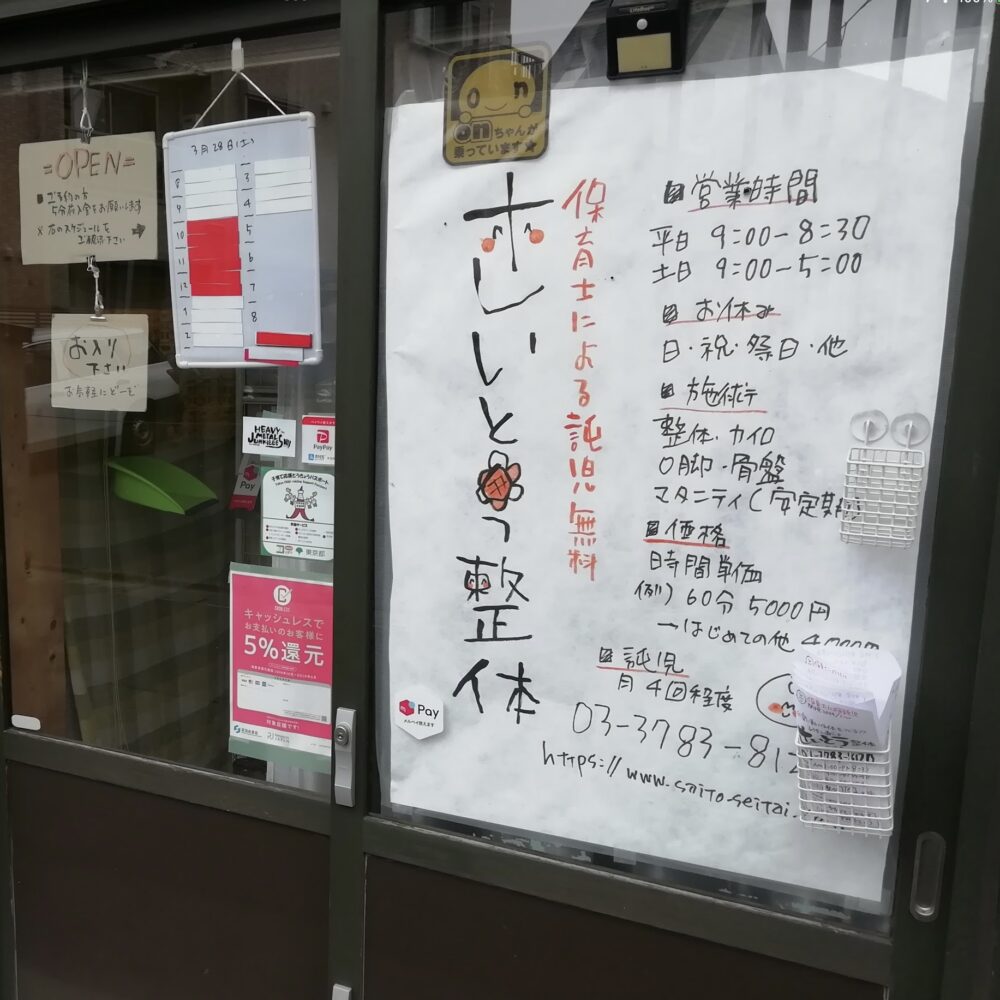 =OPEN=
■ ご予約の方
5分前入室をお願いします
※ 右のスケジュールを
ご覧下さい
お入り
下さい
お気軽にどーぞ
3月28日(土)
8
9
10
11
12
1
2
3
4
5
6
7
8
HEAVY
METAL
PayPay
Pay
子育て応援とうきょうパスポート
東京都
キャッシュレスで
お支払いのお客様に
5%還元
対象店舗です!
on
onちゃんが
乗っています★
さいとう整体
保育士による託児無料
営業時間
平日 9:00-8:30
土日 9:00-5:00
お休み
日・祝・祭日・他
施術
整体・カイロ
O脚・骨盤
マタニティ(安定期)
価格
時間単価
例) 60分 5000円
→はじめての他
託児
月4回程度
03-3783-812
https://www.saito-seitai
Pay
メルペイ使えます